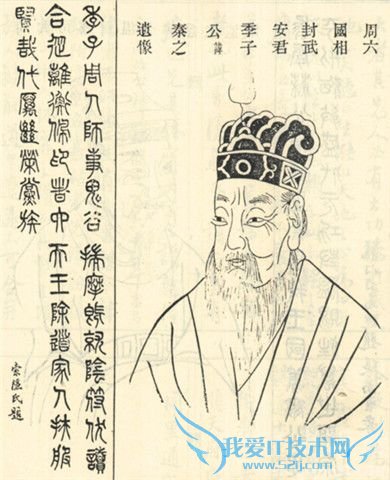 周六
國相
封武
安君
季子
公諱
秦之
遺像
季子周人師事鬼谷揣摩既就陰符伏讀
合從離衡佩印者六天王除道家人扶服
賢哉代厲繼榮黨族
索隱氏題
我爱IT技术网
www.52ij.com